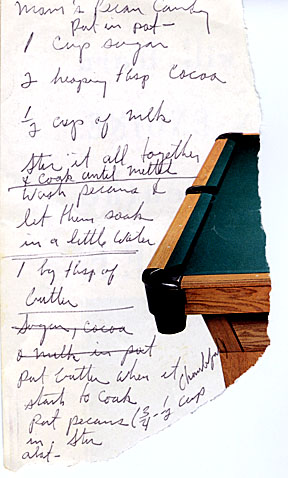 Mom's Pecan Candy
Put in pot-
1 Cup sugar
2 heaping tbsp Cocoa
1/2 cup of milk
Stir it all together
& Cook until melted
Wash pecans &
let them soak
in a little water
1 big tbsp of
butter
Sugar, cocoa
& milk in pot
put butter when it
starts to cook
Put pecans (3/4 - 1/2 cup
in. Stir